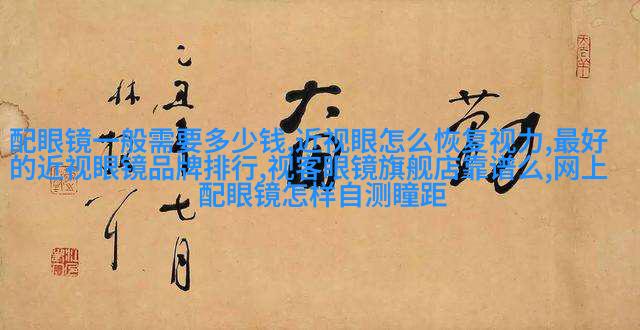 配眼镜一般需要多少钱,近视眼怎么恢复视力,最好
的近视眼镜品牌排行,视客眼镜旗舰店靠谱么,网上
配眼镜怎样自测瞳距
勤
乙丑年七月